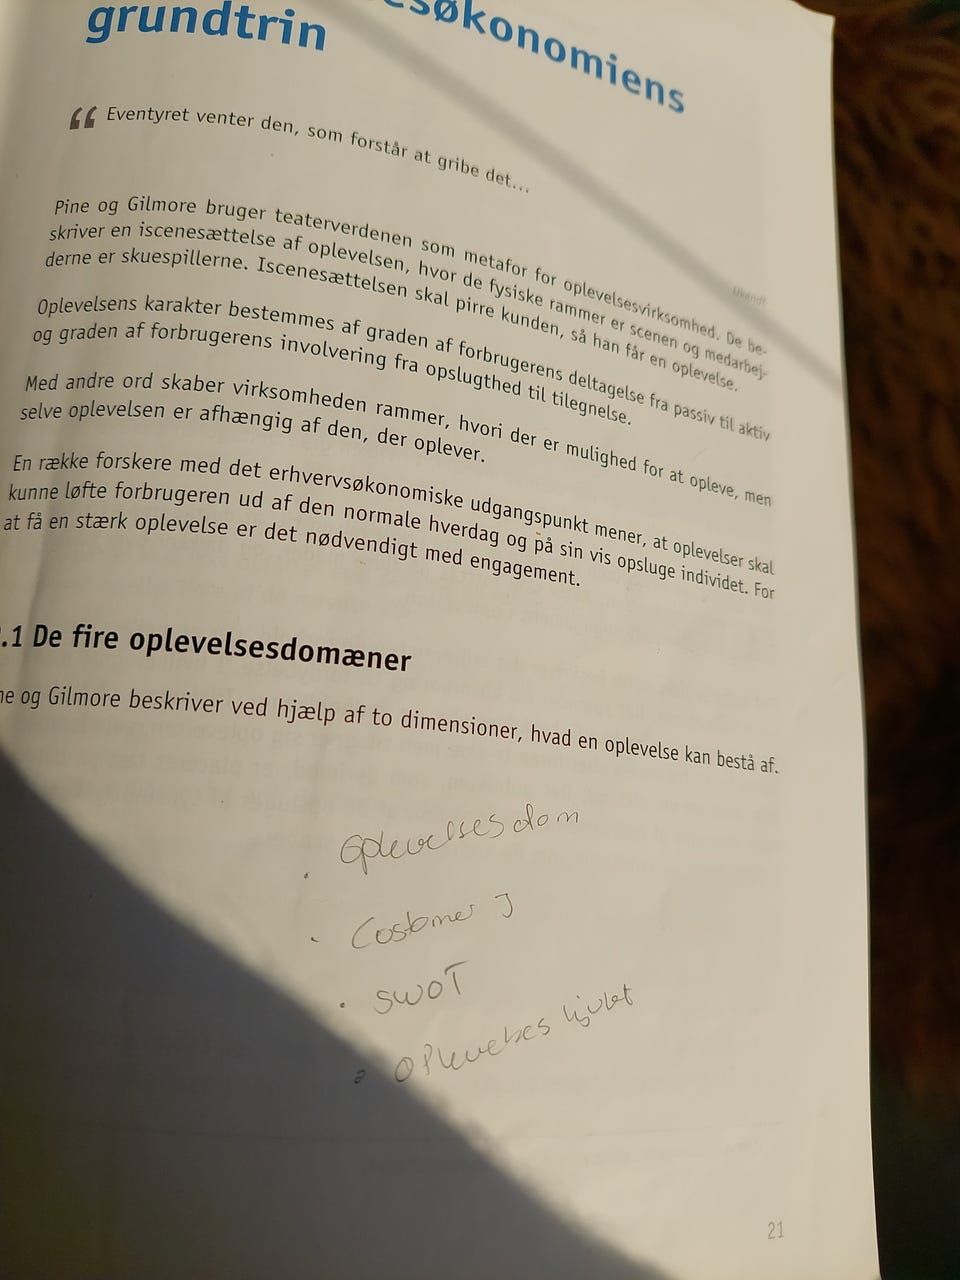 esøkonomiens
grundtrin
“ Eventyret venter den, som forstår at gribe det...
Ukendt
Pine og Gilmore bruger teaterverdenen som metafor for oplevelsesvirksomhed. De be-
skriver en iscenesættelse af oplevelsen, hvor de fysiske rammer er scenen og medarbej-
derne er skuespillerne. Iscenesættelsen skal pirre kunden, så han får en oplevelse.
Oplevelsens karakter bestemmes af graden af forbrugerens deltagelse fra passiv til aktiv
og graden af forbrugerens involvering fra opslugthed til tilegnelse.
Med andre ord skaber virksomheden rammer, hvori der er mulighed for at opleve, men
selve oplevelsen er afhængig af den, der oplever.
En række forskere med det erhvervsøkonomiske udgangspunkt mener, at oplevelser skal
kunne løfte forbrugeren ud af den normale hverdag og på sin vis opsluge individet. For
at få en stærk oplevelse er det nødvendigt med engagement.
.1 De fire oplevelsesdomæner
ne og Gilmore beskriver ved hjælp af to dimensioner, hvad en oplevelse kan bestå af.
· Oplevelsesdom
· Costomer J
· SWOT
· Oplevelses hjulet
21